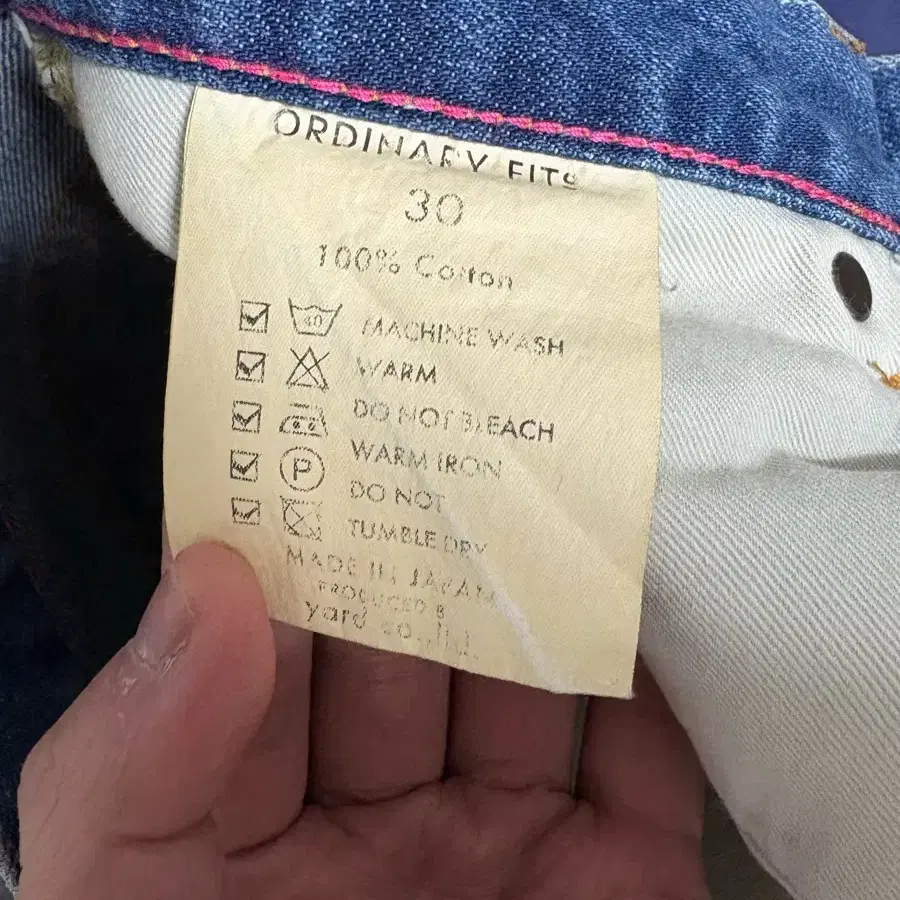 ORDINARY FITS
30
100% Cotton
40 MACHINE WASH
WARM
DO NOT BLEACH
WARM IRON
P DO NOT
TUMBLE DRY
MADE IN JAPAN
PRODUCED B
yard co.,ltd.